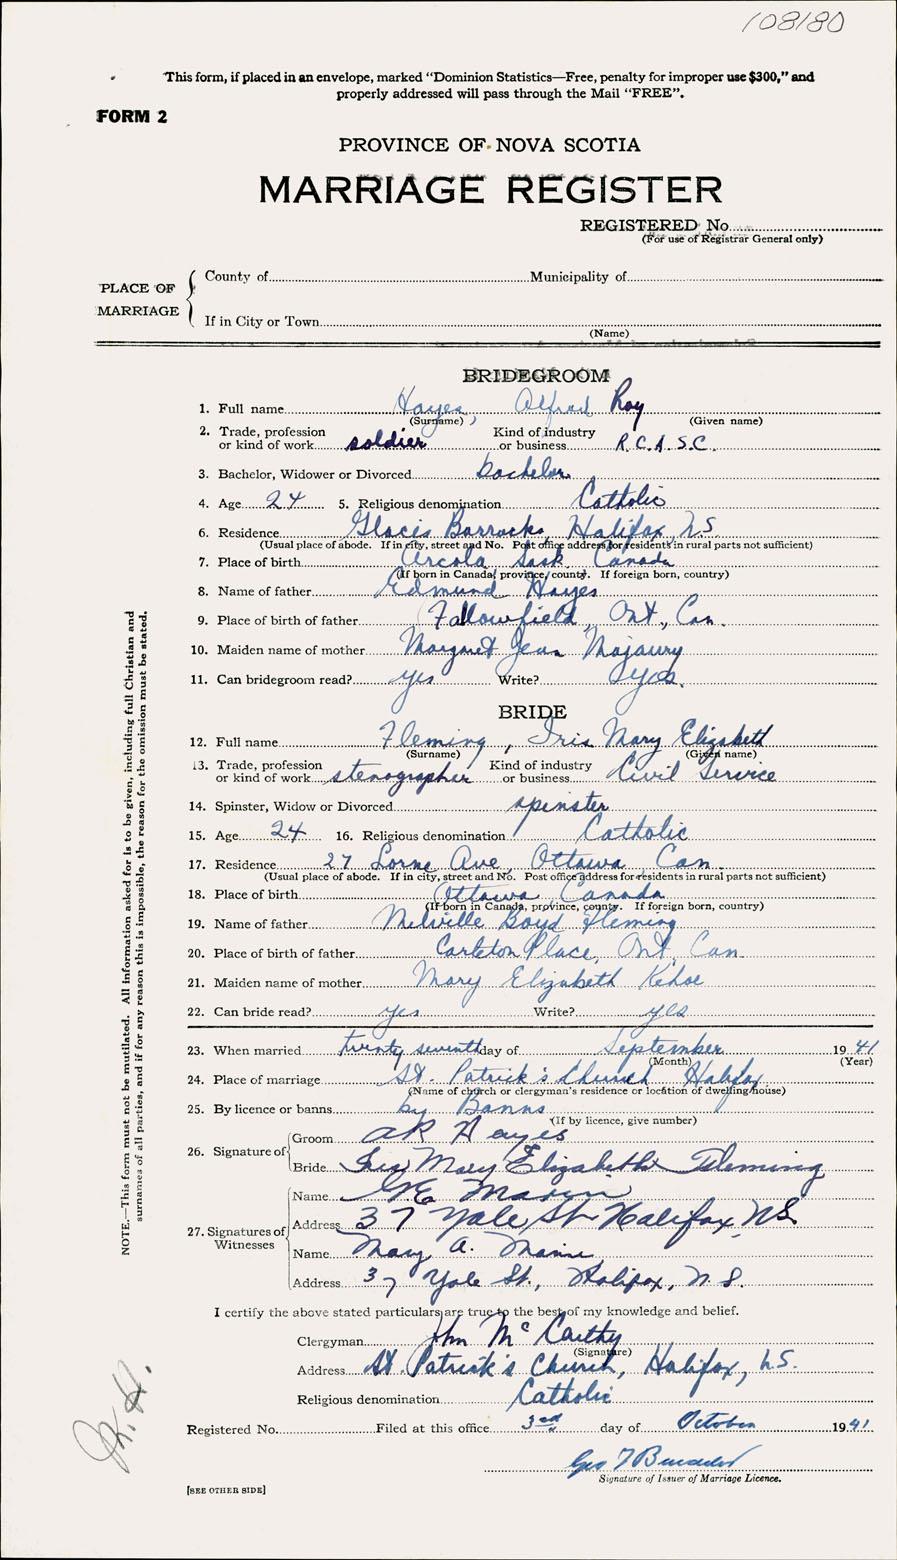 108180
This form, if placed in an envelope, marked "Dominion Statistics—Free, penalty for improper use $300," and
properly addressed will pass through the Mail "FREE".
FORM 2
PROVINCE OF NOVA SCOTIA
MARRIAGE REGISTER
REGISTERED No
(For use of Registrar General only)
PLACE OF MARRIAGE
County of Municipality of
If in City or Town
(Name)
BRIDEGROOM
1. Full name Hayes, Alfred Roy
(Surname) (Given name)
2. Trade, profession or kind of work soldier Kind of industry or business R.C.A.S.C.
3. Bachelor, Widower or Divorced bachelor
4. Age 24 5. Religious denomination Catholic
6. Residence Glacis Barracks, Halifax, N.S.
(Usual place of abode. If in city, street and No. Post office address for residents in rural parts not sufficient)
7. Place of birth Arcola Sask. Canada
(If born in Canada, province, county. If foreign born, country)
8. Name of father Edmund Hayes
9. Place of birth of father Fallowfield, Ont., Can.
10. Maiden name of mother Margaret Jean Majaury
11. Can bridegroom read? yes Write? yes.
BRIDE
12. Full name Fleming, Iris Mary Elizabeth
(Surname) (Given name)
13. Trade, profession or kind of work stenographer Kind of industry or business Civil Service
14. Spinster, Widow or Divorced spinster
15. Age 24 16. Religious denomination Catholic
17. Residence 27 Lorne Ave, Ottawa, Can.
(Usual place of abode. If in city, street and No. Post office address for residents in rural parts not sufficient)
18. Place of birth Ottawa Canada
(If born in Canada, province, county. If foreign born, country)
19. Name of father Melville Boyd Fleming
20. Place of birth of father Carleton Place, Ont, Can
21. Maiden name of mother Mary Elizabeth Kehoe
22. Can bride read? yes Write? yes
23. When married twenty seventh day of September 1941
(Month) (Year)
24. Place of marriage St. Patrick's Church Halifax
(Name of church or clergyman's residence or location of dwelling house)
25. By licence or banns by Banns
(If by licence, give number)
26. Signature of
Groom AR Hayes
Bride Iris Mary Elizabeth Fleming
27. Signatures of Witnesses
Name
Address 37 Yale St Halifax, NS
Name Mary A.
Address 37 Yale St., Halifax, N.S.
I certify the above stated particulars are true to the best of my knowledge and belief.
Clergyman John McCarthy
(Signature)
Address St. Patrick's Church, Halifax, N.S.
Religious denomination Catholic
Registered No. Filed at this office 3rd day of October 1941
Geo
Signature of Issuer of Marriage Licence.
[SEE OTHER SIDE]
NOTE.—This form must not be mutilated. All information asked for is to be given, including full Christian and
surnames of all parties, and if for any reason this is impossible, the reason for the omission must be stated.